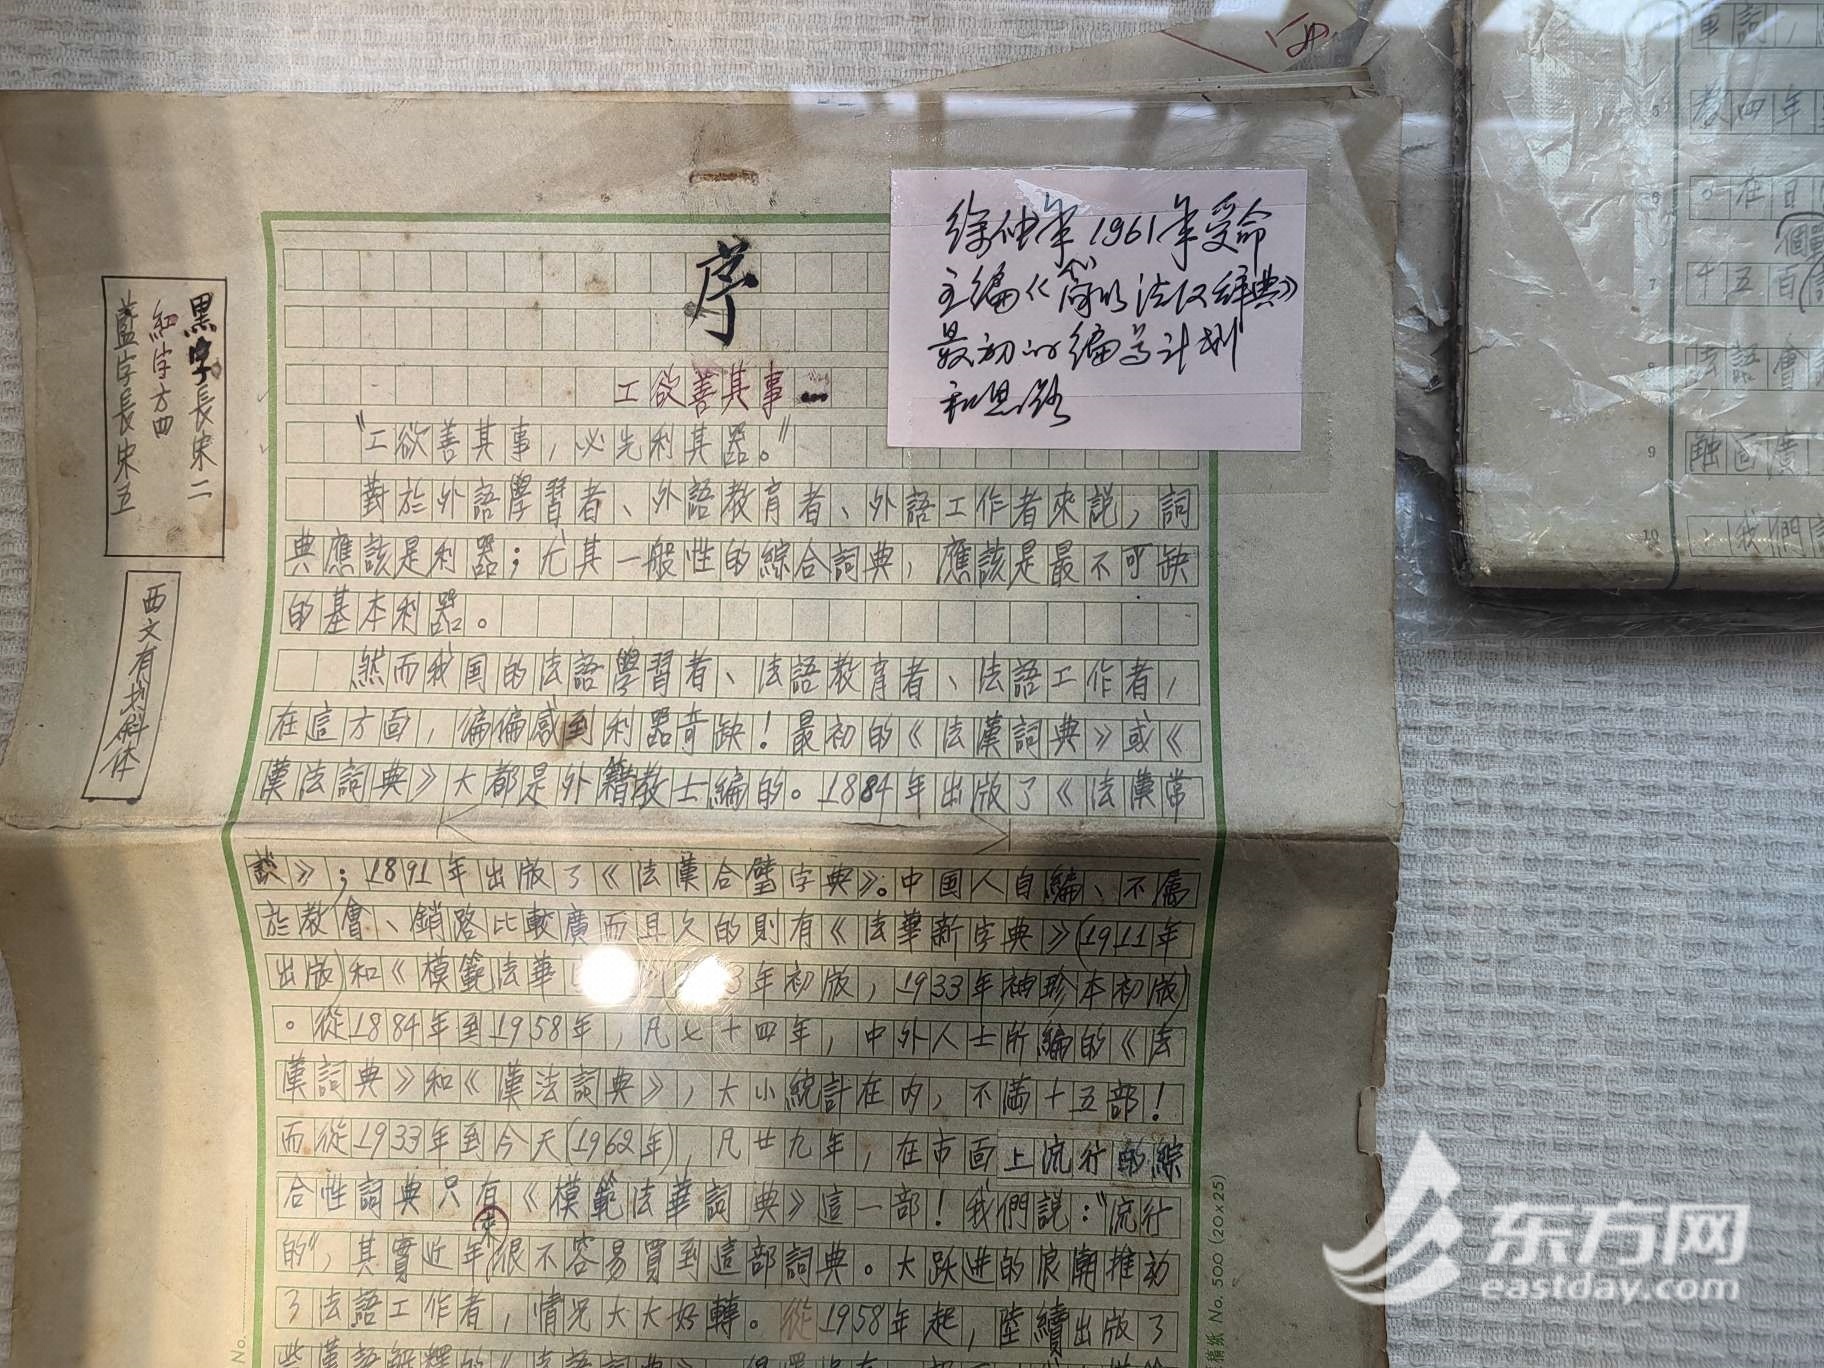 徐仲年1961年受命
主编《简明法汉辞典》
最初的编写计划
和思路
黑字長宋二
紅字方四
藍字長宋五
西文有找斜体
序
工欲善其事
“工欲善其事，必先利其器。”
對於外語學習者、外語教育者、外語工作者來説，詞
典應該是利器；尤其一般性的綜合詞典，應該是最不可缺
的基本利器。
然而我国的法語學習者、法語教育者、法語工作者，
在這方面，偏偏感到利器奇缺！最初的《法漢詞典》或《
漢法詞典》大都是外籍教士編的。1884年出版了《法漢常
談》；1891年出版了《法漢合璧字典》。中國人自編、不屬
於教會、銷路比較廣而且久的則有《法華新字典》(1911年
出版)和《模範法華 3年初版，1933年袖珍本初版)
。從1884年至1958年，凡七十四年，中外人士所編的《法
漢詞典》和《漢法詞典》，大小統計在内，不滿十五部！
而從1933年到今天(1962年)，凡廿九年，在市面上流行的綜
合性詞典只有《模範法華詞典》這一部！我們説：“流行
的”，其實近年來很不容易買到這部詞典。大跃進的浪潮推动
了法語工作者，情况大大好轉。從1958年起，陸續出版了
些漢語解釋的《法語詞典》
單詞，
教四年
。在日
個單
7 十五百
8 法語會
9
10 、我們
稿紙 No. 500 (20×25)
No.
东方网
eastday.com